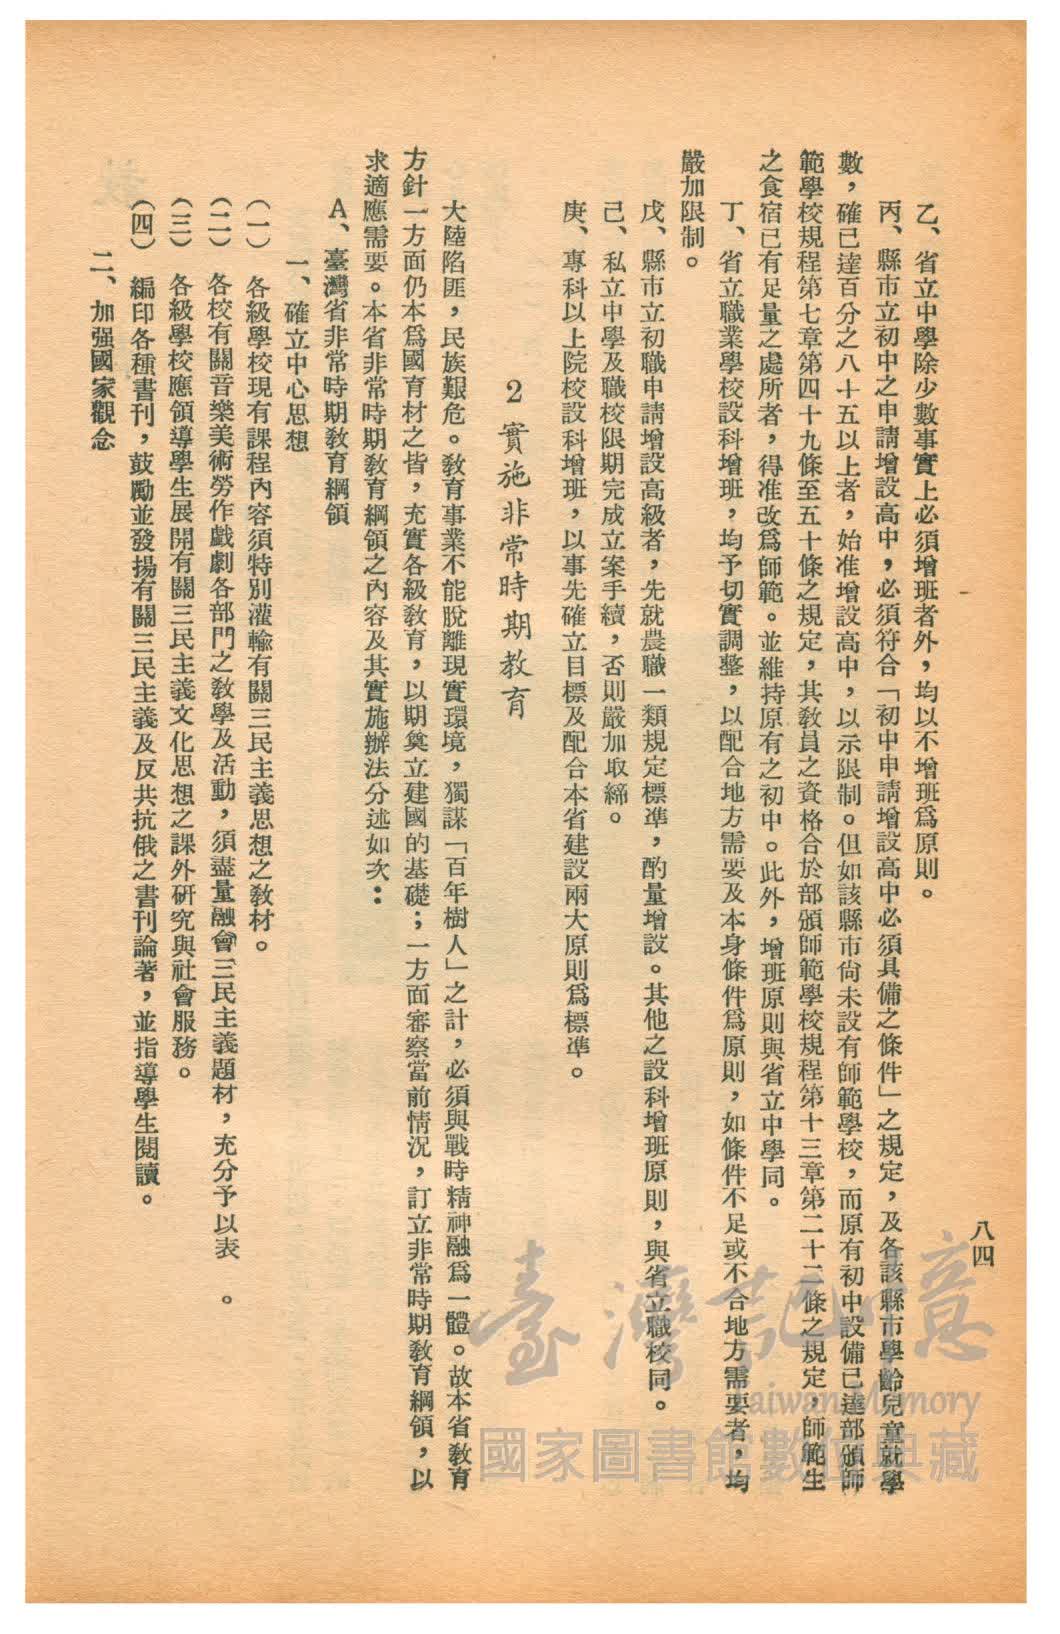 八四
乙、省立中學除少數事實上必須增班者外，均以不增班爲原則。
丙、縣市立初中之申請增設高中，必須符合「初中申請增設高中必須具備之條件」之規定，及各該縣市學齡兒童就學
數，確已達百分之八十五以上者，始准增設高中，以示限制。但如該縣市尙未設有師範學校，而原有初中設備已達部頒師
範學校規程第七章第四十九條至五十條之規定，其敎員之資格合於部頒師範學校規程第十三章第二十二條之規定，師範生
之食宿已有足量之處所者，得准改爲師範。並維持原有之初中。此外，增班原則與省立中學同。
丁、省立職業學校設科增班，均予切實調整，以配合地方需要及本身條件爲原則，如條件不足或不合地方需要者，均
嚴加限制。
戊、縣市立初職申請增設高級者，先就農職一類規定標準，酌量增設。其他之設科增班原則，與省立職校同。
己、私立中學及職校限期完成立案手續，否則嚴加取締。
庚、專科以上院校設科增班，以事先確立目標及配合本省建設兩大原則爲標準。
2 實施非常時期教育
大陸陷匪，民族艱危。敎育事業不能脫離現實環境，獨謀「百年樹人」之計，必須與戰時精神融爲一體。故本省敎育
方針一方面仍本爲國育材之旨，充實各級敎育，以期奠立建國的基礎；一方面審察當前情況，訂立非常時期敎育綱領，以
求適應需要。本省非常時期敎育綱領之內容及其實施辦法分述如次：
A、臺灣省非常時期敎育綱領
一、確立中心思想
（一）各級學校現有課程內容須特別灌輸有關三民主義思想之敎材。
（二）各校有關音樂美術勞作戲劇各部門之敎學及活動，須盡量融會三民主義題材，充分予以表　。
（三）各級學校應領導學生展開有關三民主義文化思想之課外研究與社會服務。
（四）編印各種書刊，鼓勵並發揚有關三民主義及反共抗俄之書刊論著，並指導學生閱讀。
二、加强國家觀念
臺灣記憶
Taiwan Memory
國家圖書館數位典藏